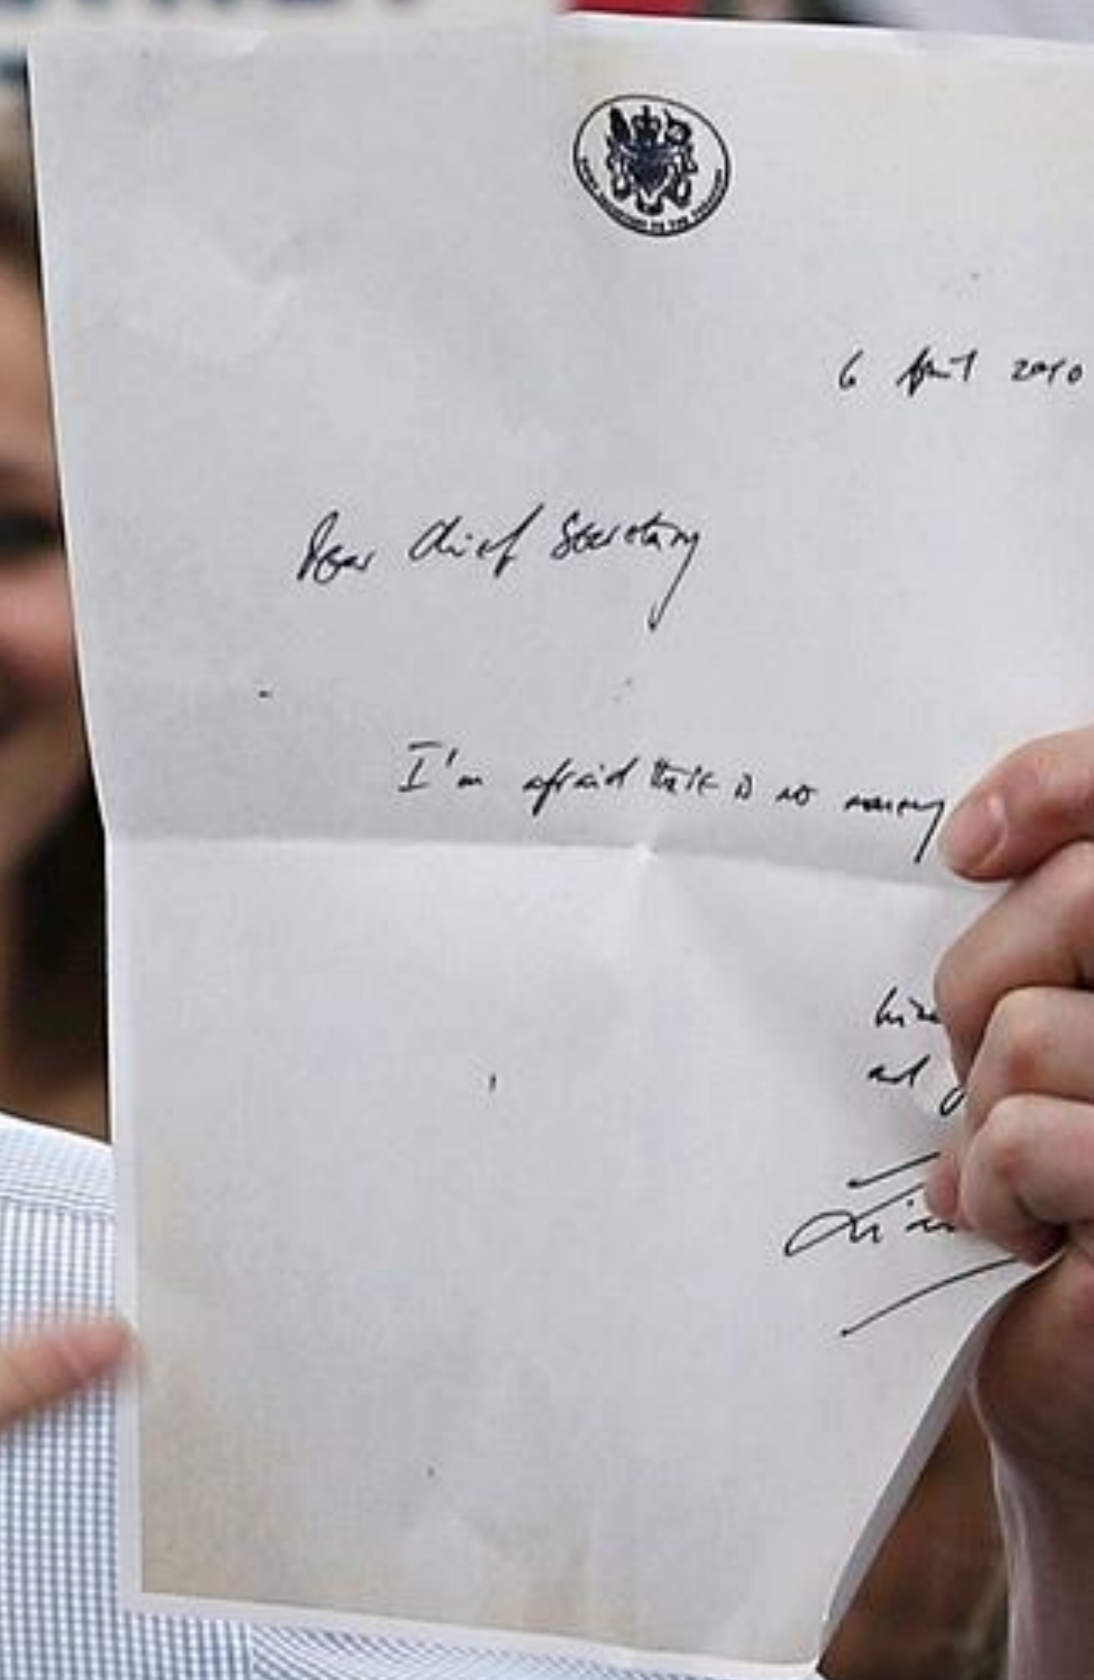 6 April 2010
Dear Chief Secretary
I'm afraid there is no money
and